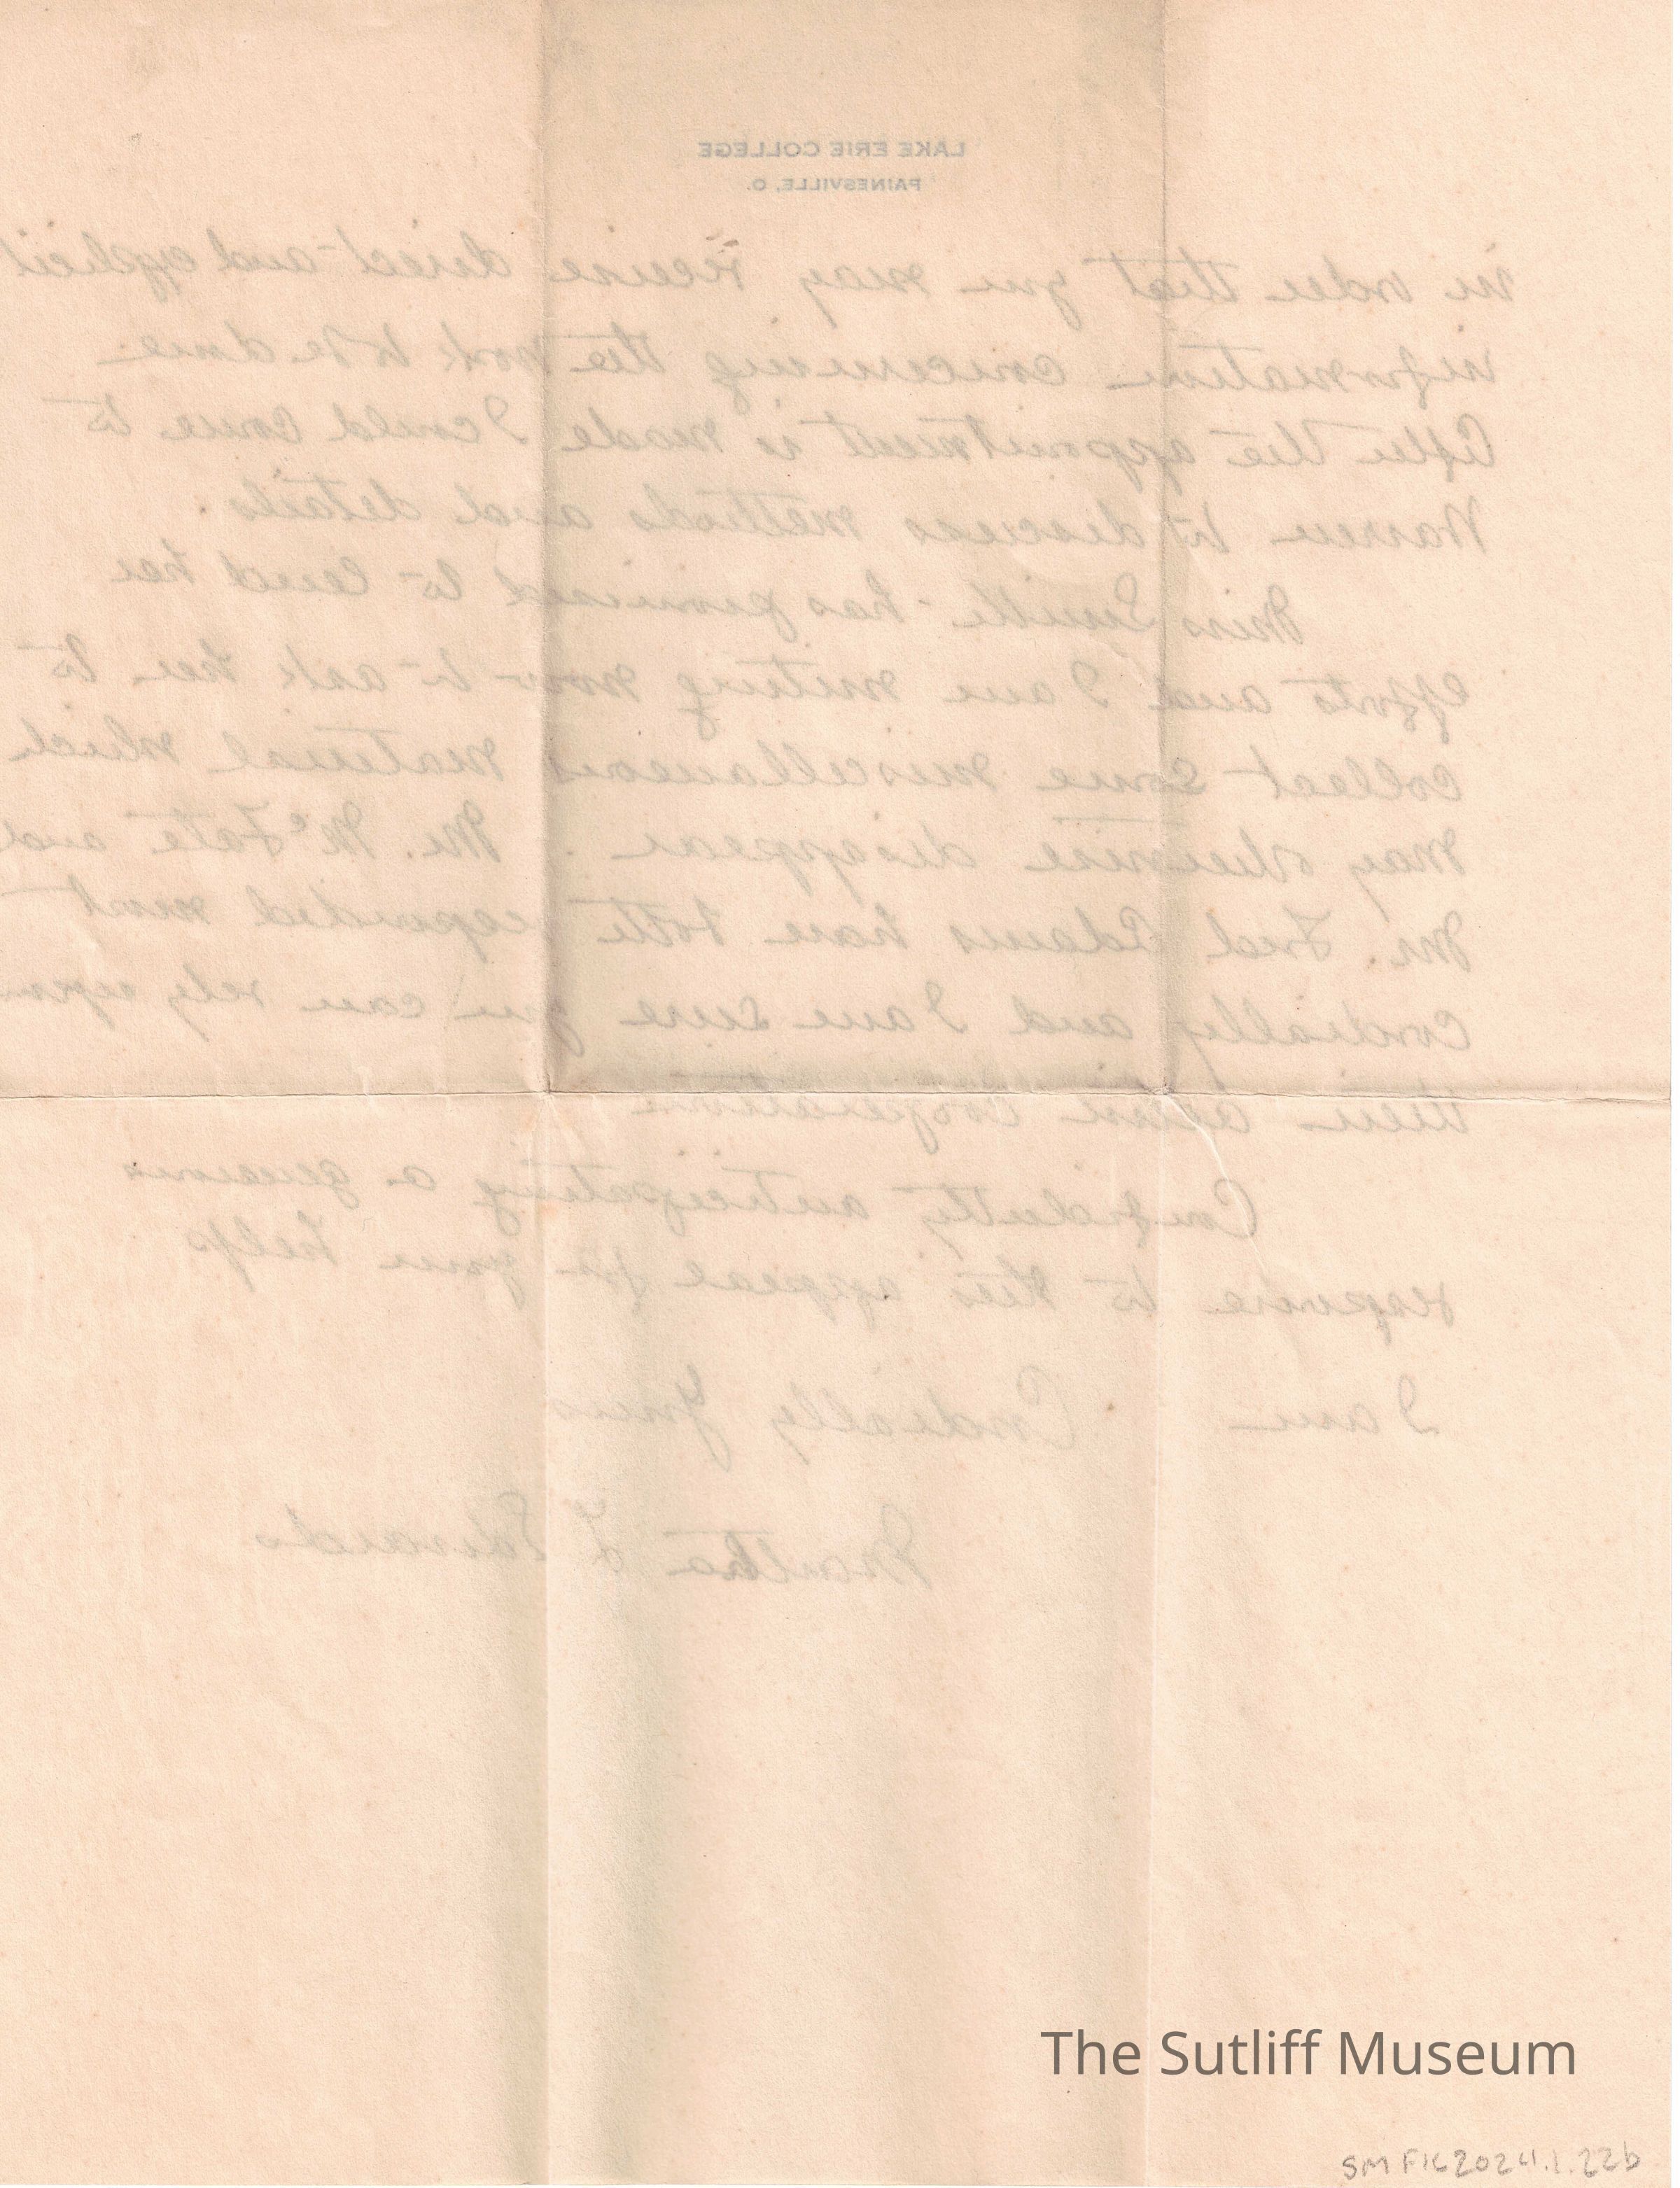 LAKE ERIE COLLEGE
PAINESVILLE, O.
in order that you may receive direct and explicit
information concerning the work to be done
After the appointment is made I could come to
Warren to discuss methods and details.
Miss Smith has promised to lend her
efforts and I am writing now to ask her to
collect some miscellaneous material which
may otherwise disappear. Mr. McFate and
Mr. Fred Adams have both responded most
cordially and I am sure you can rely upon
their active cooperation
Confidently anticipating a generous
response to this appeal for your help
I am Cordially Yours
Martha L Edwards
The Sutliff Museum
SM FK2024.1.22b